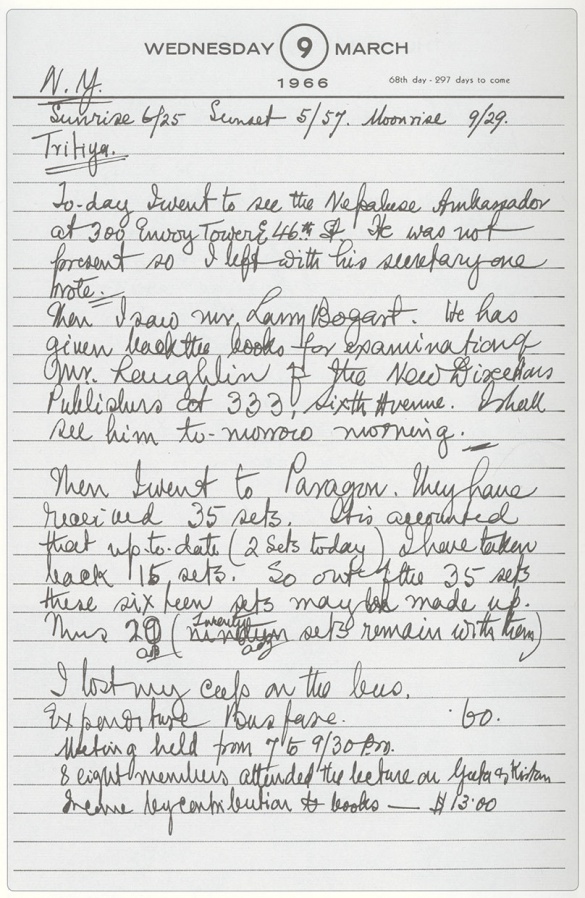 WEDNESDAY 9 MARCH
1966
68th day - 297 days to come
N.Y.
Sunrise 6/25 Sunset 5/57. Moonrise 9/29.
Tritiya.
To-day I went to see the Nepalese Ambassador
at 300 Envoy Tower E 46th St He was not
present so I left with his secretary one
note.
Then I saw Mr. Larry Bogart. He has
given back the books for examination of
Mr. Laughlin of the New Directions
Publishers at 333, Sixth Avenue. I shall
see him to-morrow morning.
Then I went to Paragon. They have
received 35 sets. It is accounted
that up-to-date (2 sets today) I have taken
back 15 sets. So out of the 35 sets
these sixteen sets may be made up.
Thus 20 (Twenty sets remain with them)
I lost my cap on the bus.
Expenditure Bus fare. 60.
Meeting held from 7 to 9/30 P.m.
8 eight members attended the lecture on Geeta & Kirtan
Income by contribution & books — $ 13.00